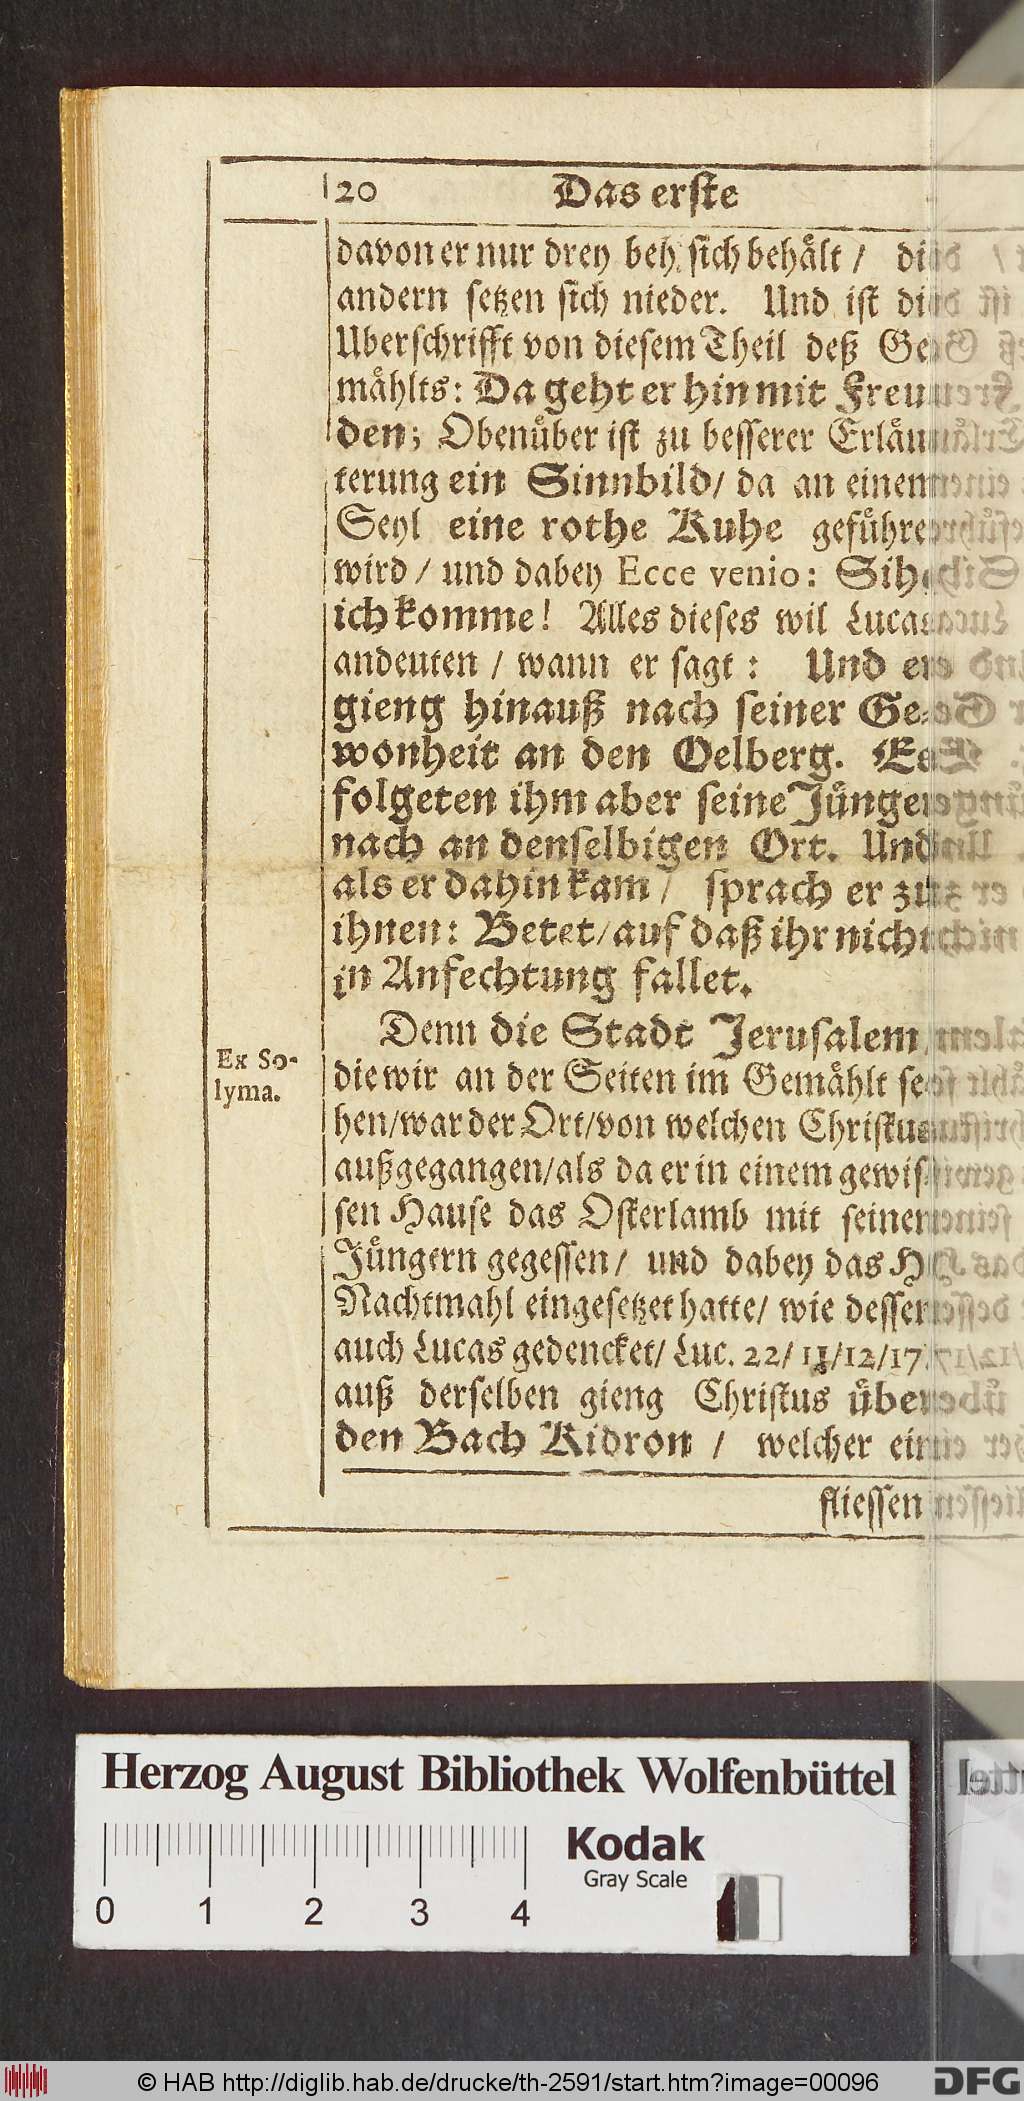 20 Das erste
davon er nur drey beh sich behält / die
andern setzen sich nieder. Und ist die
Uberschrifft von diesem Theil deß Ge-
mählts: Da geht er hin mit Freu-
den; Obenüber ist zu besserer Erläu-
terung ein Sinnbild/ da an einem
Seyl eine rothe Kuhe geführet
wird / und dabey Ecce venio: Sihe
ich komme! Alles dieses wil Lucas
andeuten / wann er sagt : Und er
gieng hinauß nach seiner Ge-
wonheit an den Oelberg. Es
folgeten ihm aber seine Jünger
nach an denselbigen Ort. Und
als er dahin kam / sprach er zu
ihnen: Betet/ auf daß ihr nicht
in Anfechtung fallet.
Denn die Stadt Jerusalem
Ex So-
lyma.
die wir an der Seiten im Gemählt se-
hen/ war der Ort/ von welchen Christus
außgegangen/ als da er in einem gewis-
sen Hause das Osterlamb mit seinen
Jüngern gegessen / und dabey das H.
Nachtmahl eingesetzet hatte/ wie dessen
auch Lucas gedencket/ Luc. 22/ 11/12/17
auß derselben gieng Christus über
den Bach Kidron / welcher ein
fliessen
Herzog August Bibliothek Wolfenbüttel
Kodak
Gray Scale
0 1 2 3 4
© HAB http://diglib.hab.de/drucke/th-2591/start.htm?image=00096
DFG